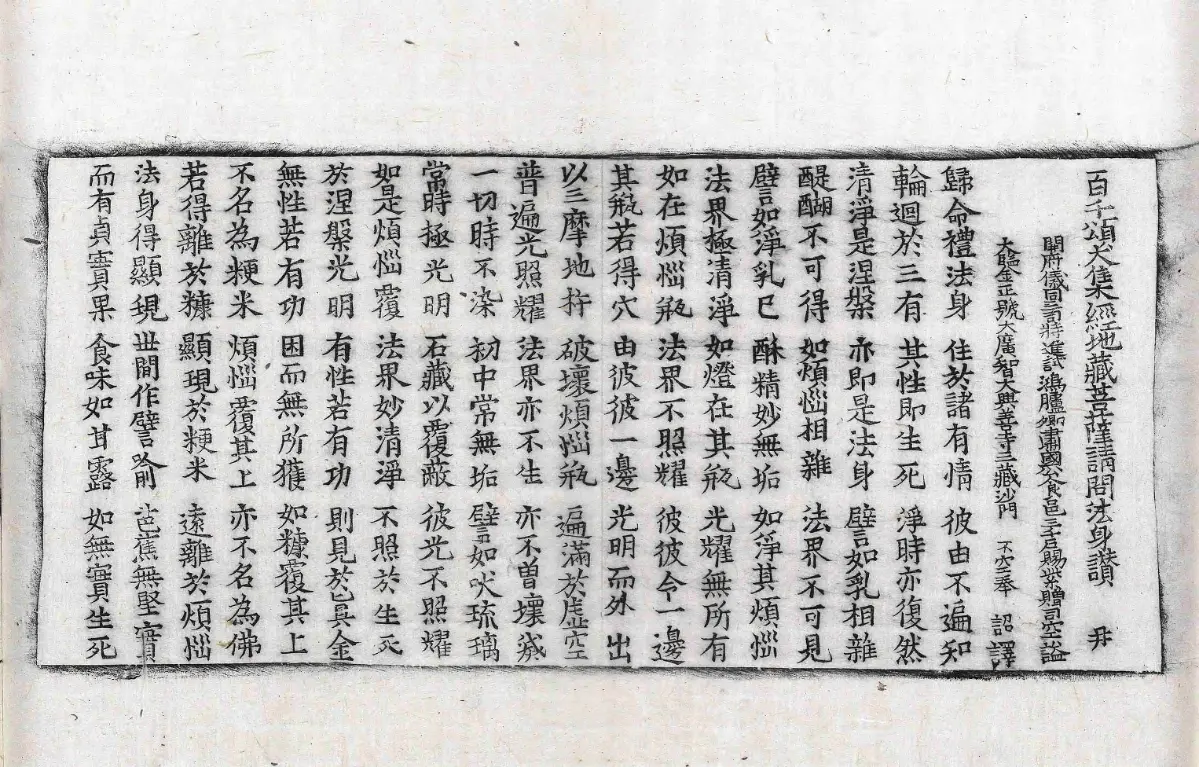 百千頌大集經地藏菩薩請問法身讚 丹
開府儀同三司特進試鴻臚卿肅國公食邑三千戶賜紫贈司空謚
大鑑正號大廣智大興善寺三藏沙門 不空奉 詔譯
歸命禮法身 住於諸有情 彼由不遍知
輪迴於三有 其性即生死 淨時亦復然
清淨是涅槃 亦即是法身 譬如乳相雜
醍醐不可得 如煩惱相雜 法界不可見
譬如淨乳已 酥精妙無垢 如淨其煩惱
法界極清淨 如燈在其瓶 光耀無所有
如在煩惱瓶 法界不照耀 彼彼令一邊
其瓶若得穴 由彼彼一邊 光明而外出
以三摩地杵 破壞煩惱瓶 遍滿於虛空
普遍光照耀 法界亦不生 亦不曾壞滅
一切時不染 初中常無垢 譬如吠琉璃
常時極光明 石藏以覆蔽 彼光不照耀
如是煩惱覆 法界妙清淨 不照於生死
於涅槃光明 有性若有功 則見於真金
無性若有功 困而無所獲 如糠覆其上
不名為粳米 煩惱覆其上 亦不名為佛
若得離於糠 顯現於粳米 遠離於煩惱
法身得顯現 世間作譬喻 芭蕉無堅實
而有貞實果 食味如甘露 如無實生死